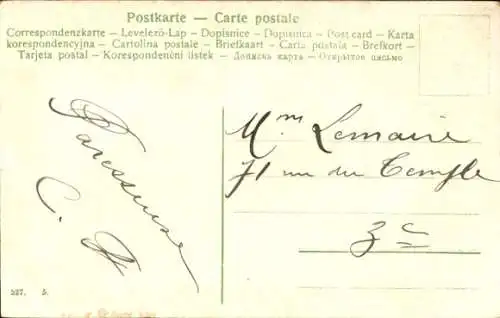 Postkarte — Carte postale
Correspondenzkarte — Levelező-Lap — Dopisnice — Dopisnica — Post card — Karta
korespondencyjna — Cartolina postale — Briefkaart — Carta postala — Brefkort —
Tarjeta postal — Korespondenčni listek — Дописна карта — Открытое письмо
Paresseuse
C. F
Mme Lemaire
71 rue du Temple
3e
527. 5.